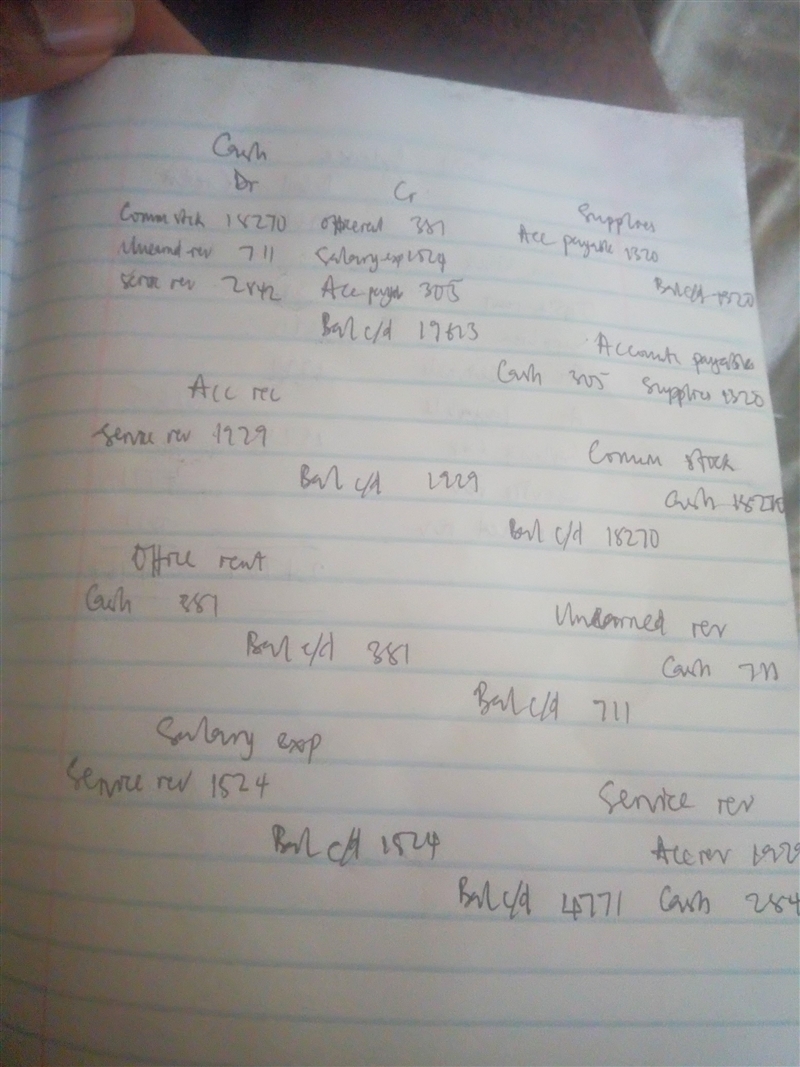 Cash
Dr Cr
Comm stck 18270 Office rent 381
Unearnd rev 711 Salary exp 1524
Servce rev 2842 Acc payab 305
Bal c/d 19613
Supplies
Acc payable 1320
Bal c/d 1320
Accounts payable
Cash 305 Supplies 1320
Acc rec
Service rev 1929
Bal c/d 1929
Comm stock
Cash 18270
Bal c/d 18270
Office rent
Cash 381
Bal c/d 381
Unearned rev
Cash 711
Bal c/d 711
Salary exp
Service rev 1524
Bal c/d 1524
Service rev
Acc rev 1929
Bal c/d 4771 Cash 284